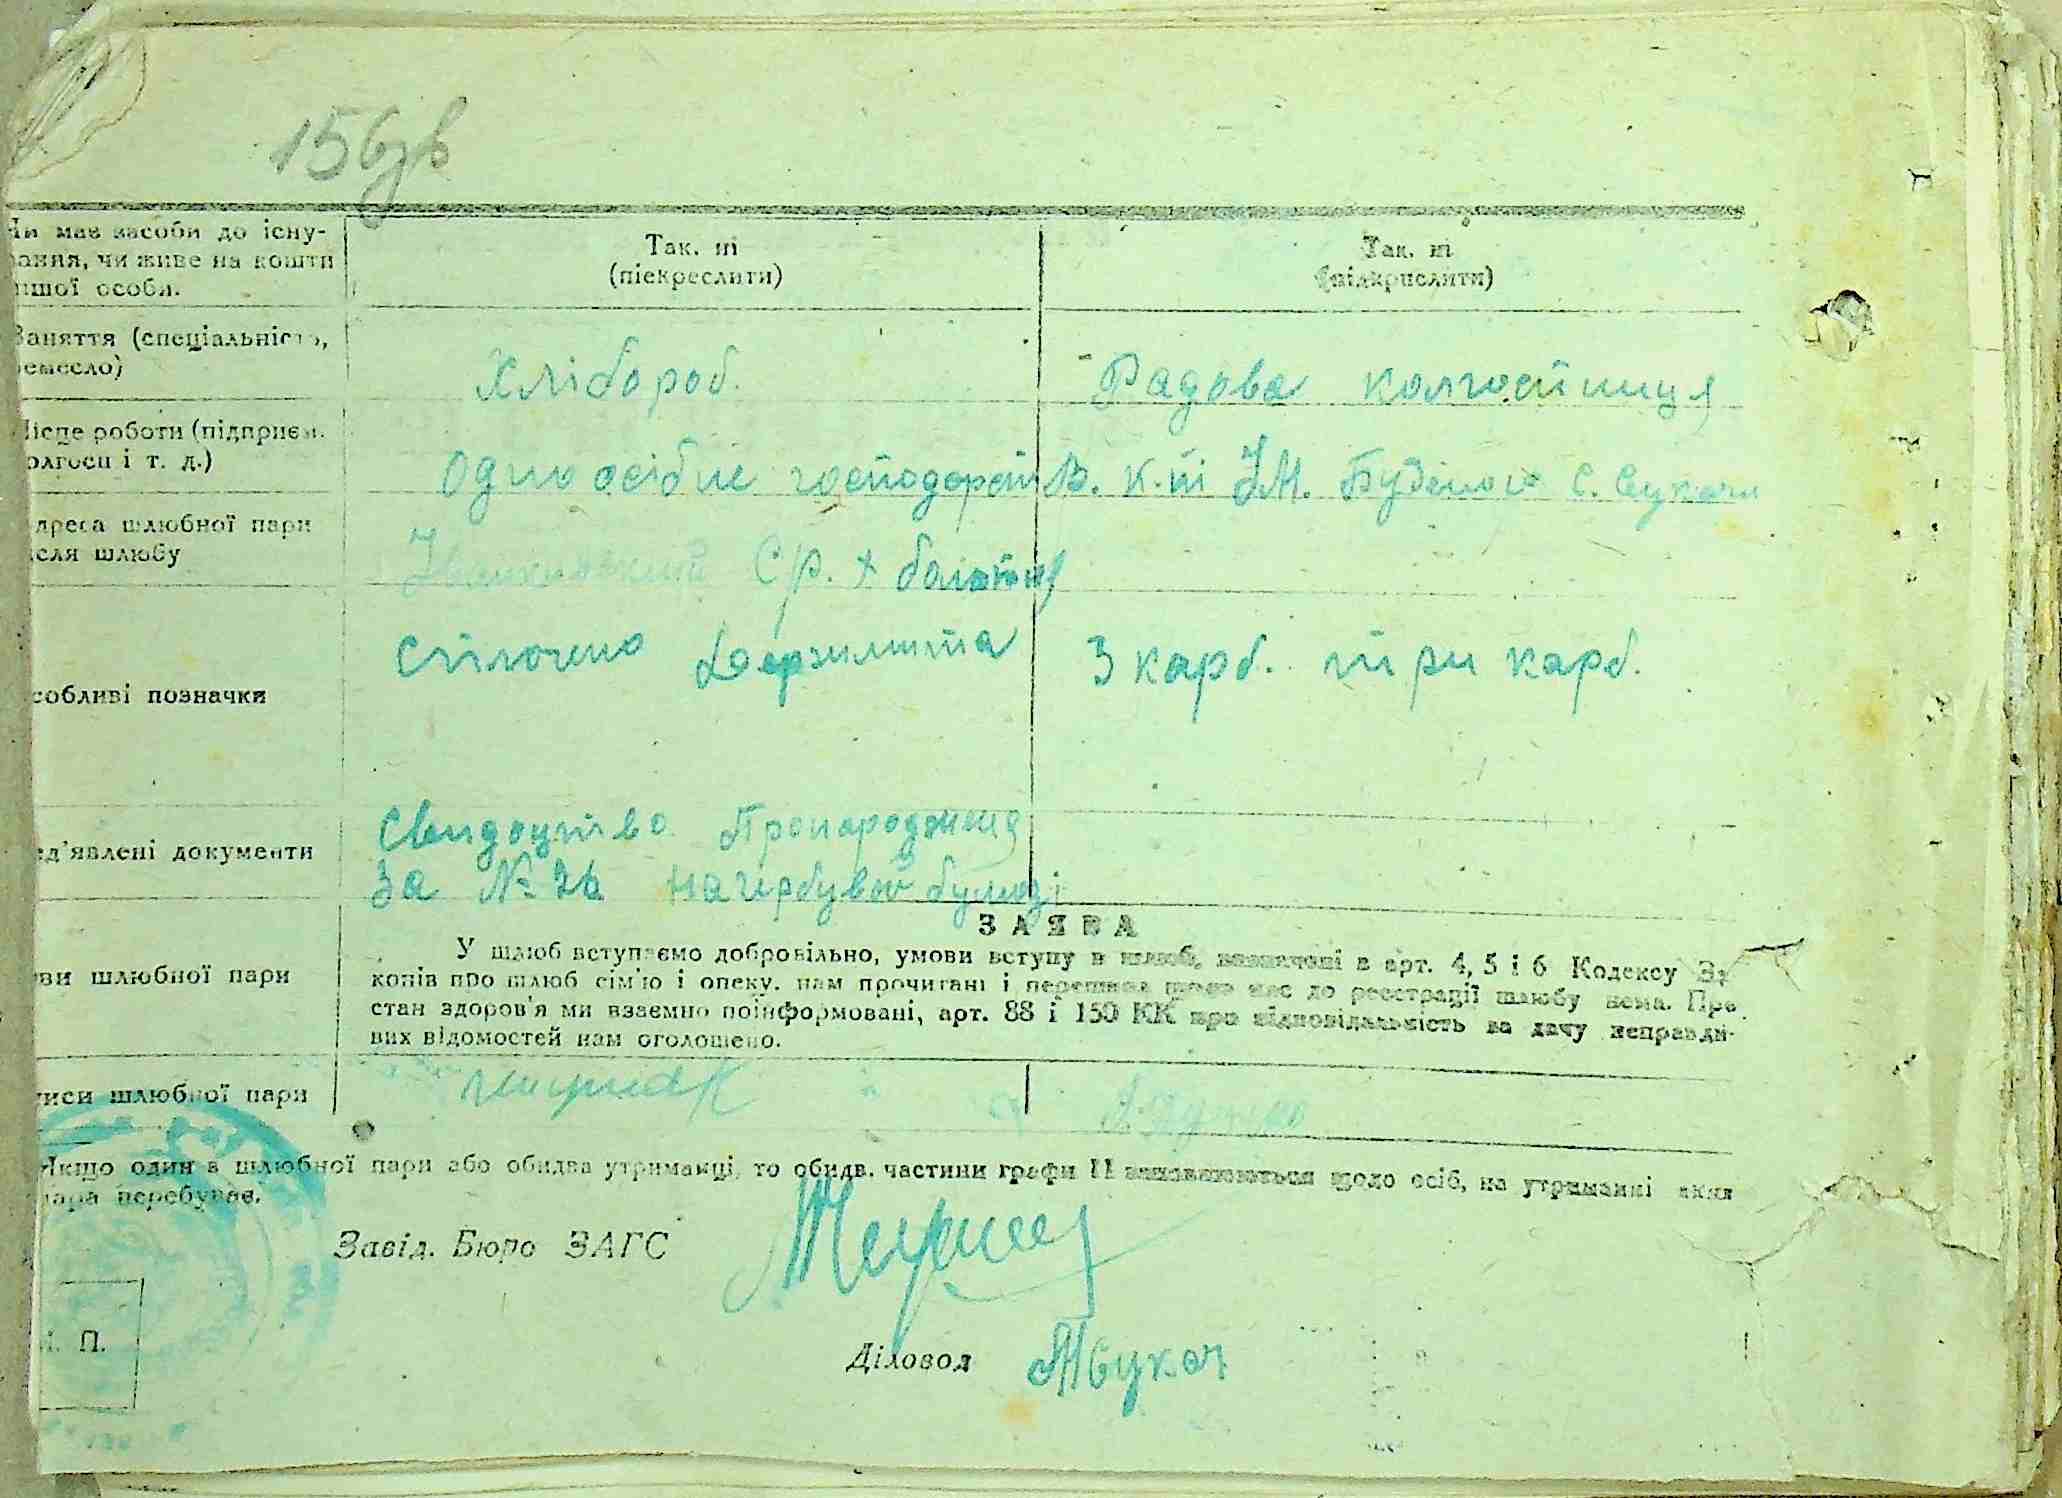 156зв
Чи має засоби до існу-
вання, чи живе на кошти
іншої особи.
Так. ні
(піекреслити)
Так. ні
(підкрислити)
Заняття (спеціальність,
ремесло)
Хлібороб.
Радова колгостниця
Місце роботи (підприєм.
колгосп і т. д.)
Одноосібне господарст
В. к.ті ІМ. Будёного с. Сукачи
Адреса шлюбної пари
після шлюбу
Іванківский Ср.
Особливі позначки
Сплочено Держмита
3 карб. три карб.
Пред'явлені документи
Свидоцтво Пронародження
За № 26 нагербувой бумозі
ЗАЯВА
У шлюб вступаємо добровільно, умови вступу в шлюб, зазначені в арт. 4, 5 і 6 Кодексу За
конів про шлюб сім'ю і опеку. нам прочитані і перешкод щодо нас до реєстрації шлюбу нема. Про
стан здоров'я ми взаємно поінформовані, арт. 88 і 150 КК про відповідальність за дачу неправди-
вих відомостей нам оголошено.
шлюбної пари
підписи шлюбної пари
Якщо один в шлюбної пари або обидва утриманці, то обидв. частини графи 11 заповнюються щодо осіб, на утриманні яких
пара перебуває.
Завід. Бюро ЗАГС
М. П.
Діловод